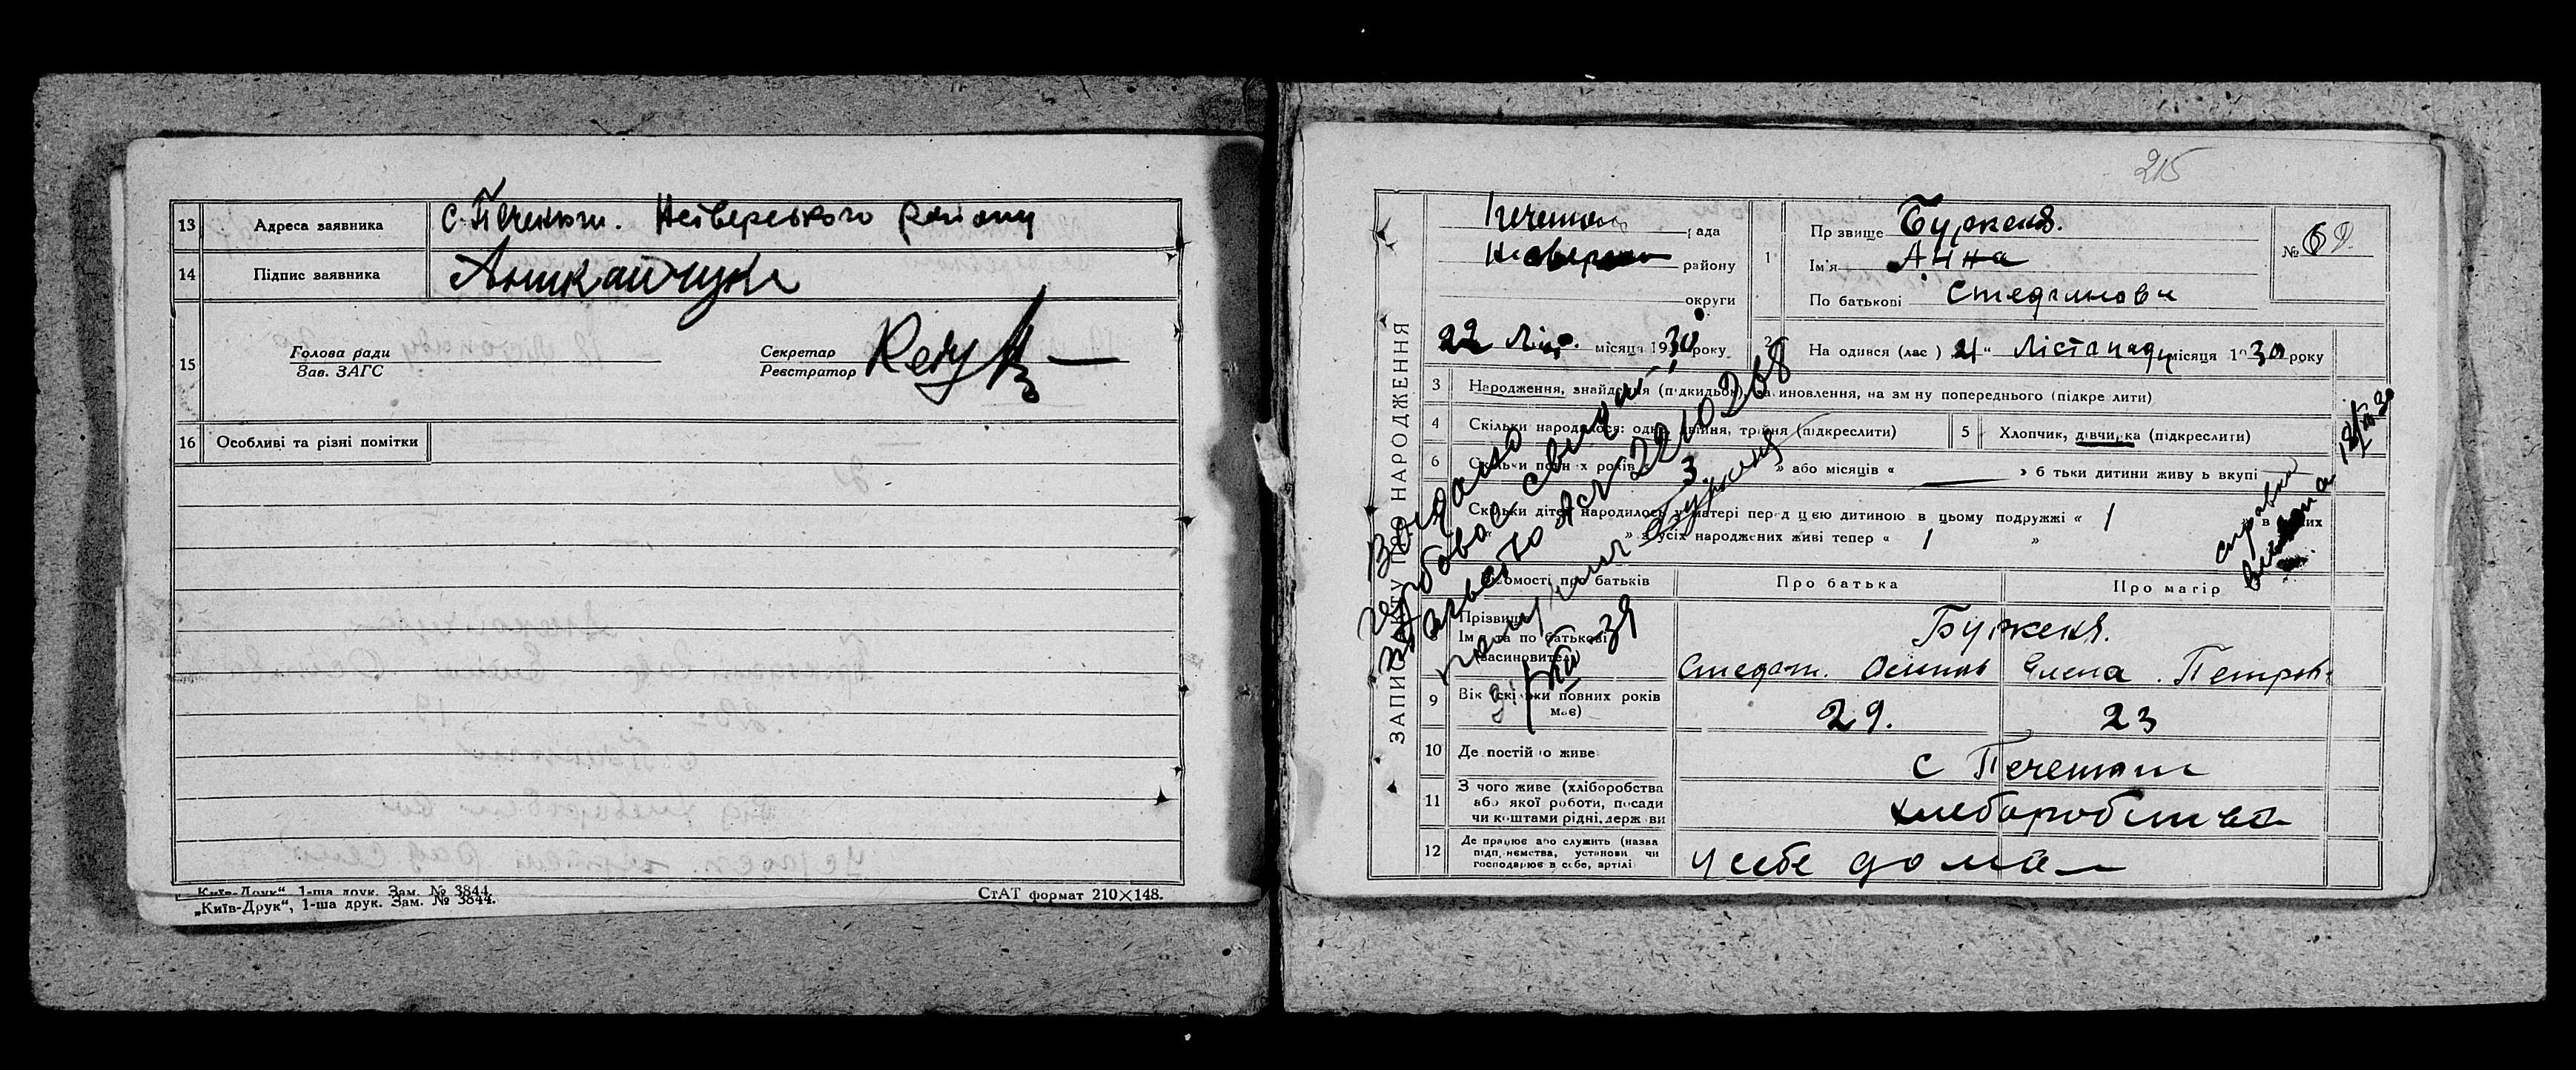 13 Адреса заявника с. Печенюги. Нсіверського району
14 Підпис заявника
15 Голова ради
Зав. ЗАГС
Секретар
Реєстратор
16 Особливі та різні помітки
„Київ-Друк“, 1-ша друк. Зам. № 3844.
„Київ-Друк“, 1-ша друк. Зам. № 3844.
СтАТ формат 210×148.
215
ЗАПИС АКТУ ПРО НАРОДЖЕННЯ
рада
району
округи
22 Ліст. місяця 1930 року
1 Прізвище Бурженя.
Ім'я Анна
По батькові Стефановн
№ 69
2 Народився (лась) 21 “ Лістапада місяця 1930 року
3 Народження, знайдення (підкидьок), усиновлення, на зміну попереднього (підкреслити)
4 Скільки народилося: одне, двійня, трійня (підкреслити)
5 Хлопчик, дівчинка (підкреслити)
6 Скільки повних років 3 » або місяців « — » батьки дитини живуть вкупі
Скільки дітей народилось у матері перед цією дитиною в цьому подружжі « 1
» з усіх народжених живі тепер « 1 »
Відомості про батьків
Про батька
Про матір
8 Прізвище
Ім'я та по батькові
(засиновител.)
Бурженя.
Стефан. Осипов Елена. Петров.
9 Вік (скільки повних років має) 29. 23
10 Де постійно живе с Печенюги
11 З чого живе (хліборобства
або якої роботи, посади
чи коштами рідні, держави
хлеборобства
12 Де працює або служить (назва
підприємства, установи чи
господарює в себе, артілі)
у себе дома
Выдано
свидет
2210268
Бурженя
31/XII 39
справка
выдана